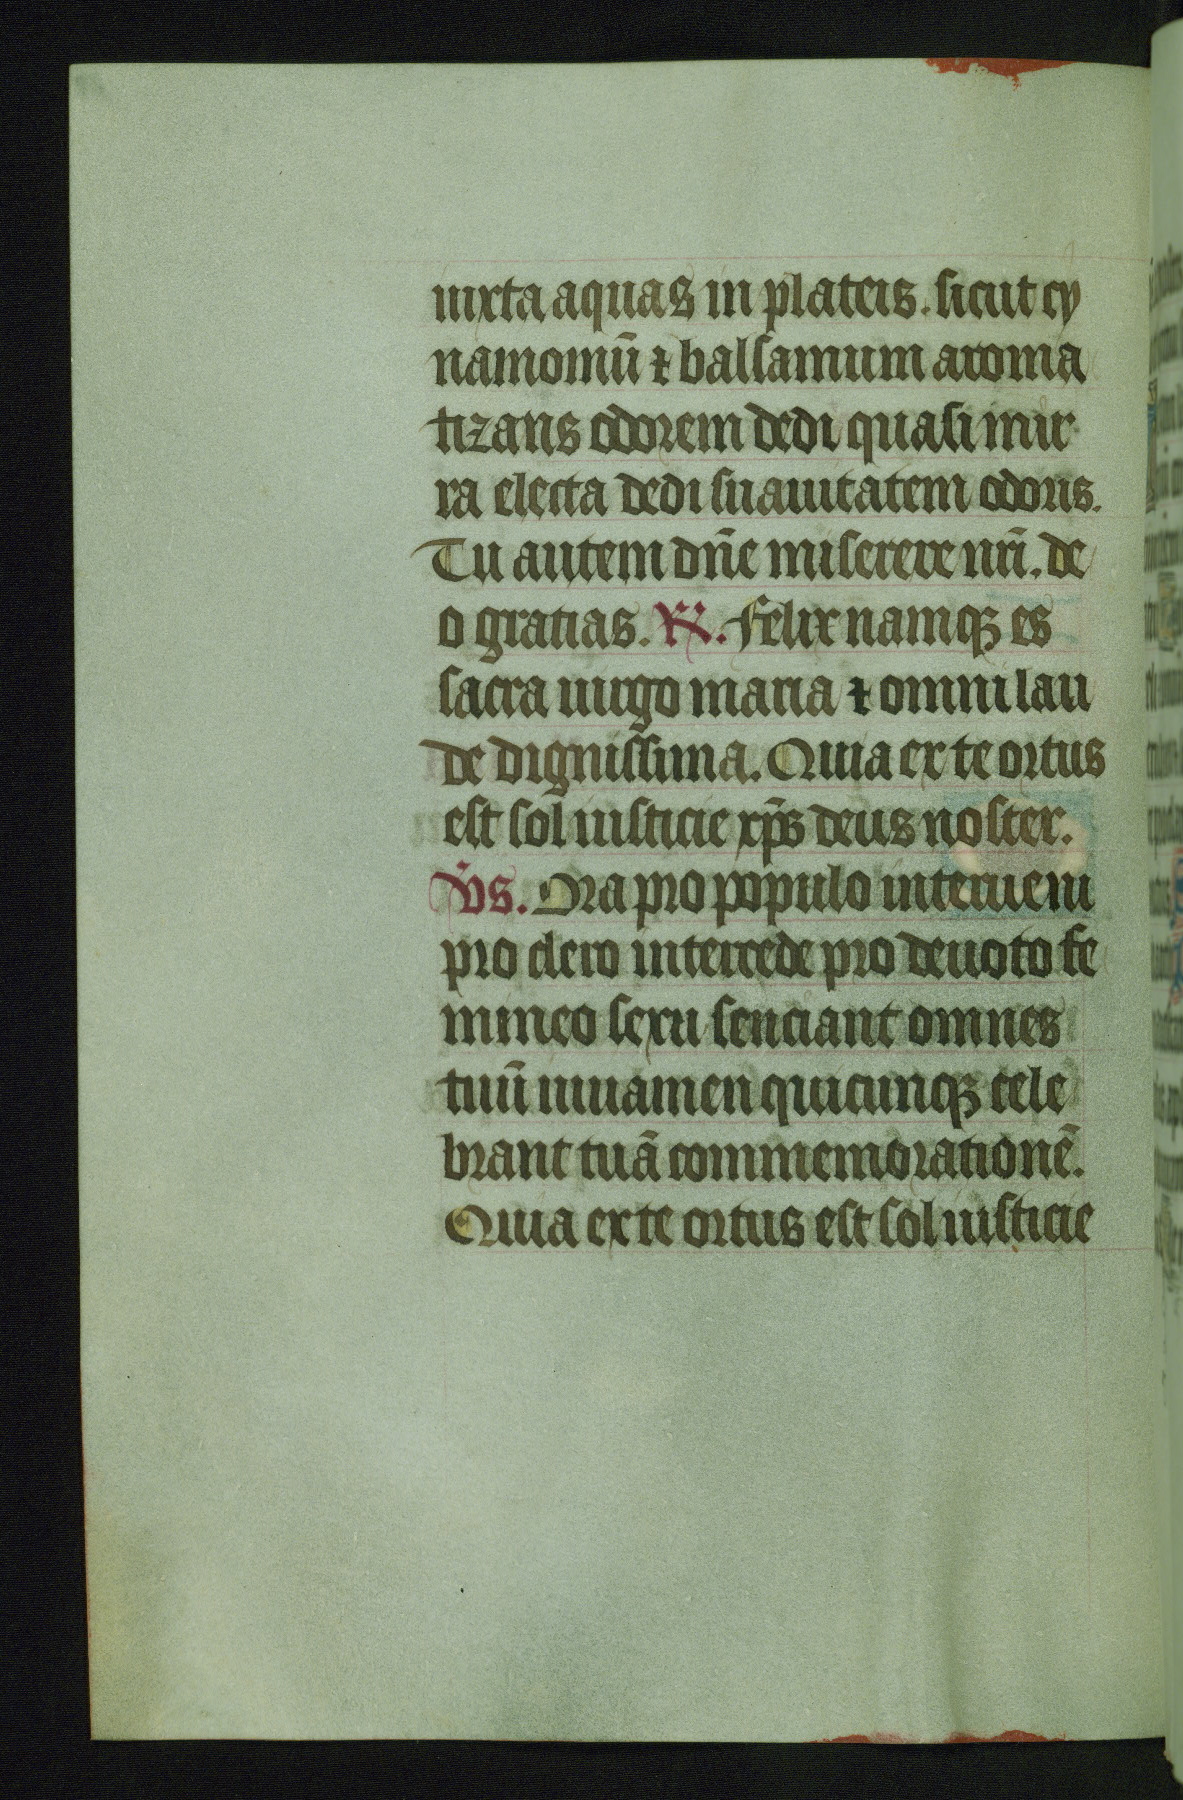 iuxta aquas in plateis. sicut cy
namomū ⁊ balsamum aroma
tizans odorem dedi quasi mir
ra electa dedi suauitatem odoris.
Tu autem dn̄e miserere nr̄i. de
o gratias. R̸. Felix namqꝫ es
sacra uirgo maria ⁊ omni lau
de dignissima. Quia ex te ortus
est sol iusticie xp̄s deus noster.
V̄s. Ora pro populo interueni
pro clero intercede pro deuoto fe
mineo sexu senciant omnes
tuū iuuamen quicunqꝫ cele
brant tuā commemorationē.
Quia ex te ortus est sol iusticie